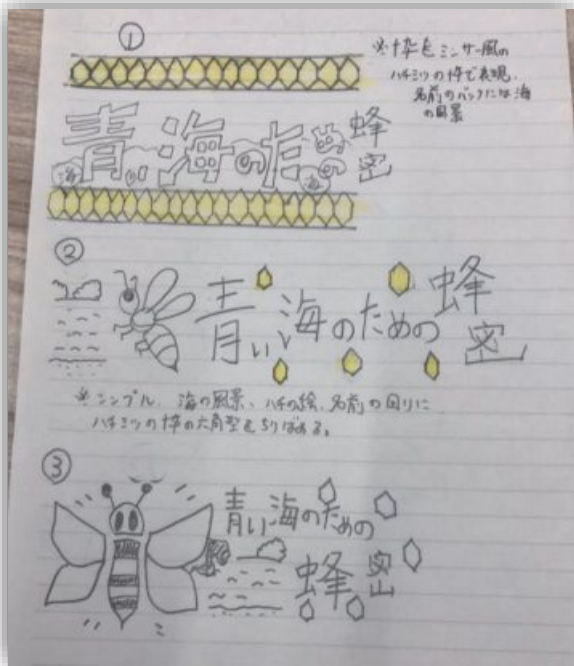 ①
※枠をミンサー風の
ハチミツの枠で表現、
名前のバックには海
の風景
青い海のための蜂
密
海
海
②
青い海のための蜂
密
※シンプル、海の風景、ハチの絵、名前の回りに
ハチミツの枠の六角型をちりばめる。
③
青い海のための
蜂密